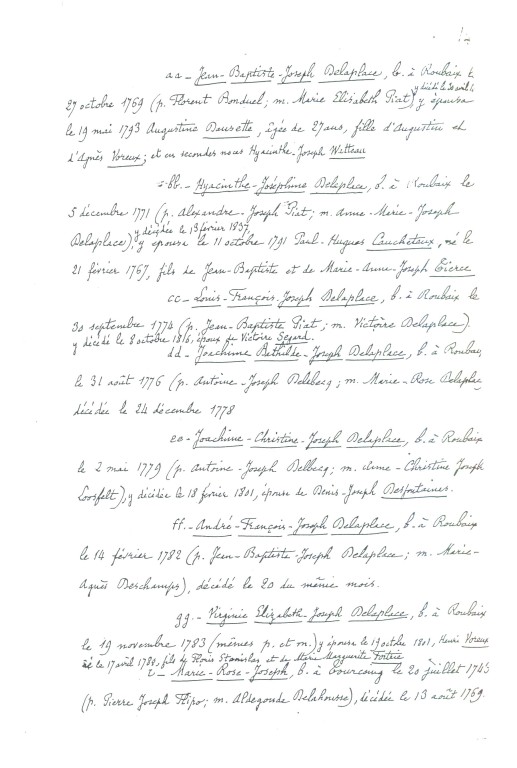 aa - Jean-Baptiste-Joseph Delaplace, b. à Roubaix le
y décédé le 30 avril
27 octobre 1769 (p. Florent Bonduel; m. Marie Elisabeth Piat) y épousa
le 19 mai 1793 Augustine Dousette, âgée de 27 ans, fille d'Augustin et
d'Agnès Voreux; et en secondes noces Hyacinthe-Joseph Watteau
bb. - Hyacinthe-Joséphine Delaplace, b. à Roubaix le
5 décembre 1771 (p. Alexandre-Joseph Piat; m. Anne-Marie-Joseph
y décédée le 13 février 1837
Delaplace), y épousa le 11 octobre 1791 Paul-Hugues Cauchetaux, né le
21 février 1767, fils de Jean-Baptiste et de Marie-Anne-Joseph Tierce
cc - Louis-François-Joseph Delaplace, b. à Roubaix le
30 septembre 1774 (p. Jean-Baptiste Piat; m. Victoire Delaplace)
y décédé le 8 octobre 1816, époux de Victoire Segard.
dd - Joachime Bathilde-Joseph Delaplace, b. à Roubaix
le 31 août 1776 (p. Antoine-Joseph Delebecq; m. Marie-Rose Delaplace
décédée le 24 décembre 1778
ee - Joachime-Christine-Joseph Delaplace, b. à Roubaix
le 2 mai 1779 (p. Antoine-Joseph Delbecq; m. Anne-Christine Joseph
Loosfelt), y décédée le 18 février 1801, épouse de Denis-Joseph Desfontaines.
ff. - André-François-Joseph Delaplace, b. à Roubaix
le 14 février 1782 (p. Jean-Baptiste-Joseph Delaplace; m. Marie-
Agnès Deschamps), décédé le 20 du même mois.
gg. - Virginie Elizabeth-Joseph Delaplace, b. à Roubaix
le 19 novembre 1783 (mêmes p. et m.) y épousa le 19 octbre 1801, Henri Voreux
né le 17 avril 1780, fils de Floris Stanislas et de Marie Marguerite Fortrie
- Marie-Rose-Joseph, b. à Tourcoing le 20 juillet 1745
(p. Pierre Joseph Flipo; m. Aldegonde Delahousse), décédée le 13 août 1769.